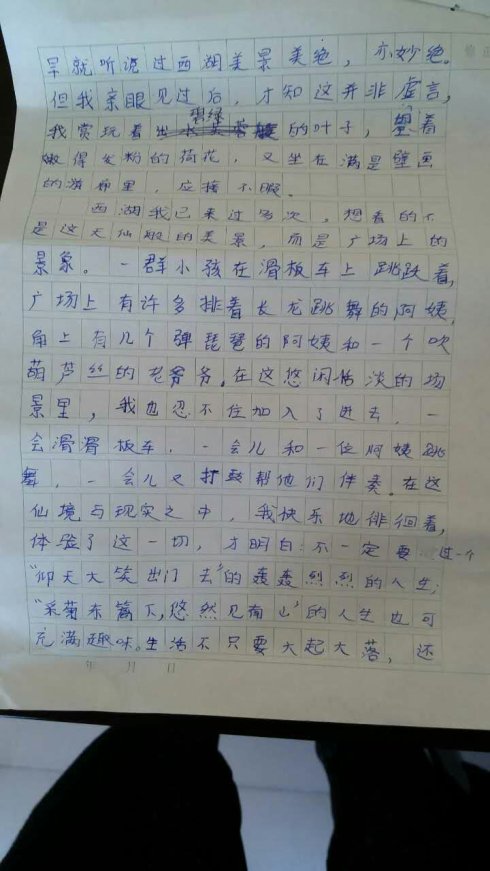 早就听说过西湖美景美绝，亦妙绝。
但我亲眼见过后，才知这并非虚言，
碧绿
我赏玩着出的叶子，着
嫩得发粉的荷花，又坐在满是壁画
的游船里，应接不暇。
西湖我已来过多次，想看的不
是这天仙般的美景，而是广场上的
景象。一群小孩在滑板车上跳跃着，
广场上有许多排着长龙跳舞的阿姨，
角上有几个弹琵琶的阿姨和一个吹
葫芦丝的老爷爷。在这悠闲恬淡的场
景里，我也忍不住加入了进去，一
会滑滑板车，一会儿和一位阿姨跳
舞，一会儿又打鼓帮他们伴奏。在这
仙境与现实之中，我快乐地徘徊着，
体验了这一切，才明白：不一定要过一个
“仰天大笑出门去”的轰轰烈烈的人生；
“采菊东篱下，悠然见南山”的人生也可
充满趣味。生活不只要大起大落，还
年 月 日